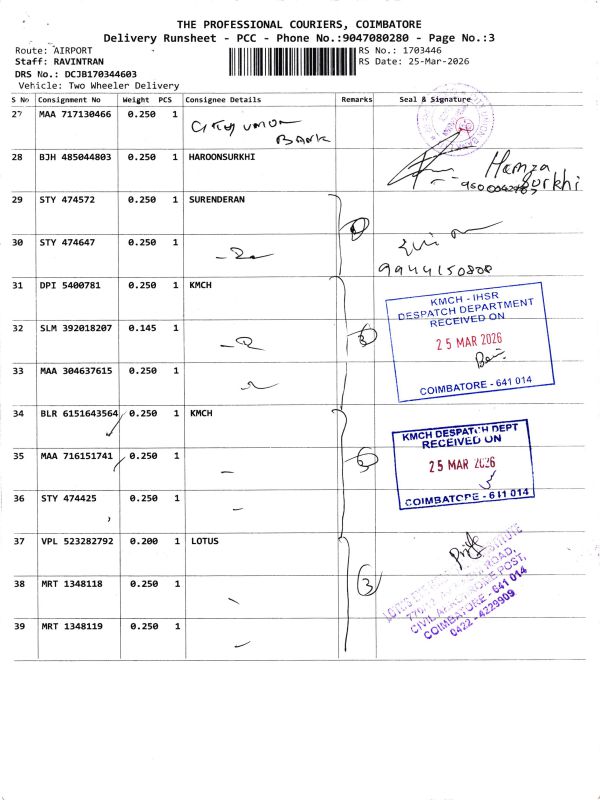 THE PROFESSIONAL COURIERS, COIMBATORE
Delivery Runsheet - PCC - Phone No.:9047080280 - Page No.:3
Route: AIRPORT
RS No.: 1703446
Staff: RAVINTRAN
RS Date: 25-Mar-2026
DRS No.: DCJB170344603
Vehicle: Two Wheeler Delivery
S No Consignment No Weight PCS Consignee Details Remarks Seal & Signature
27 MAA 717130466 0.250 1 City Union
BANK
28 BJH 485044803 0.250 1 HAROONSURKHI
Hamza
Surkhi
29 STY 474572 0.250 1 SURENDERAN
30 STY 474647 0.250 1
9944150808
31 DPI 5400781 0.250 1 KMCH
KMCH - IHSR
DESPATCH DEPARTMENT
RECEIVED ON
25 MAR 2026
COIMBATORE - 641 014
32 SLM 392018207 0.145 1 3
33 MAA 304637615 0.250 1
34 BLR 6151643564 0.250 1 KMCH
KMCH DESPATCH DEPT
RECEIVED ON
25 MAR 2026
COIMBATORE - 641 014
35 MAA 716151741 0.250 1 3
36 STY 474425 0.250 1
37 VPL 523282792 0.200 1 LOTUS
38 MRT 1348118 0.250 1 3
LOTUS
CIVIL AERODROME POST,
COIMBATORE - 641 014
0422 - 4229909
39 MRT 1348119 0.250 1